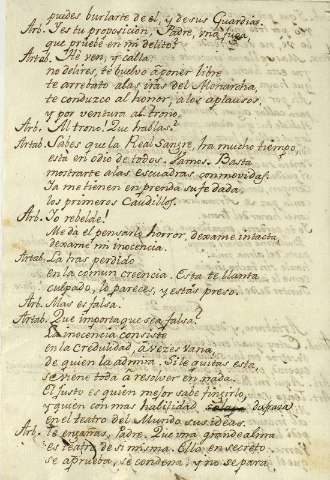 puedes burlarte de el, y de sus Guardias.
Arb. Y es tu proposicion, Padre, vna fuga
que pruebe en mi delito?
Artab. Hè ven, y calla.
no delires, te buelvo à poner libre
te arrebato a las iras del Monarcha,
te conduzco al honor, a los aplausos,
y por ventura al trono.
Arb. Al trono. Que hablas?
Artab. Sabes que la Real Sangre, ha mucho tiempo,
esta en odio de todos. Vamos. Basta
mostrarte a las escuadras conmovidas.
Ya me tienen en prenda su fe dada
los primeros Caudillos.
Arb. Yo rebelde!
Me dà el pensarlo horror, dexame intacta,
dexame mi inocencia.
Artab. La has perdido
en la comun creencia. Esta te llama
culpado, lo pareces, y estàs preso.
Arb. Mas es falsa.
Artab. Que importa que sea falsa?
La inocencia consiste
en la Credulidad, à vezes vana,
de quien la admira. Si le quitas esta,
se viene toda à resolver en nada.
El justo es quien mejor sabe fingirlo,
y quien con mas habilidad, disfraza
en el teatro del Mundo sus ideas.
Arb. Te engañas, Padre. Que vna grande alma
es teatro de si misma. Ella en secreto
se aprueba, se condena, y no se para